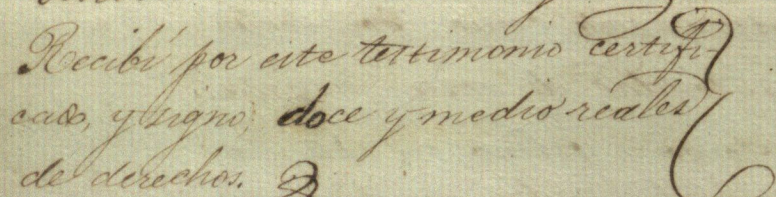 Recibí por este testimonio certifi-
cado, y signo, doce y medio reales
de derechos.